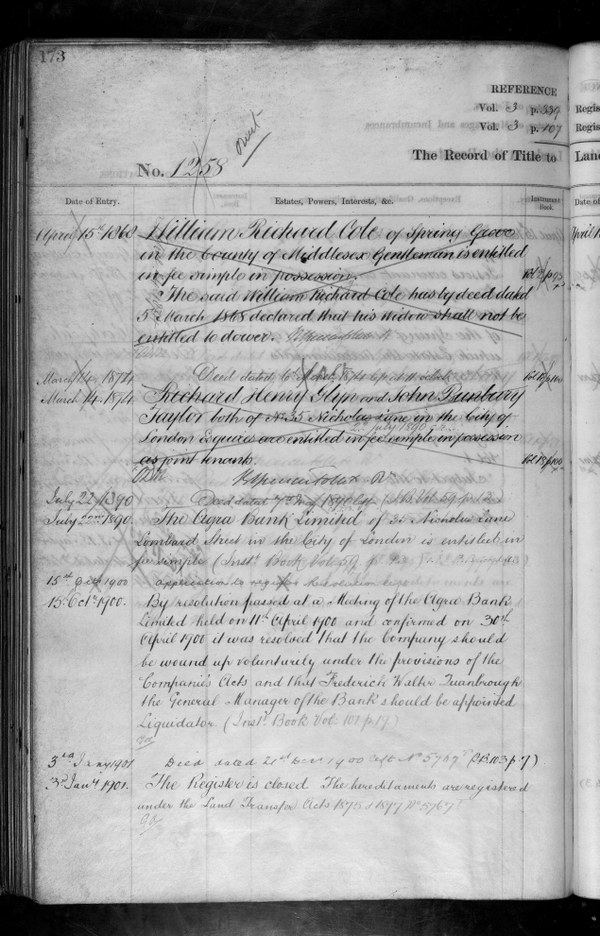 173
REFERENCE
Vol. 3 p. 339
Vol. 3 p. 107
No. 1258
The Record of Title to
Land
Regis
Regis
Date of Entry.
Estates, Powers, Interests, &c.
Instrument Book.
Date of
April 15th 1868
William Richard Cole of Spring Grove
in the County of Middlesex Gentleman is entitled
in fee simple in possession.
The said William Richard Cole has by deed dated
5th March 1868 declared that his Widow shall not be
entitled to dower.
March 14. 1874
Deed dated
March 14. 1874
Richard Henry Glyn and John Bunbury
Taylor both of No. 35 Nicholas Lane in the City of
London Esquires are entitled in fee simple in possession
as joint tenants.
July 22nd 1890
Deed dated
July 22nd 1890.
The Agra Bank Limited of 35 Nicholas Lane
Lombard Street in the City of London is entitled in
fee simple (Instt. Book Vol. 59 p.
15th Oct 1900
application to register Resolution
15th Octr. 1900.
By resolution passed at a Meeting of the Agra Bank
Limited held on 11th April 1900 and confirmed on 30th
April 1900 it was resolved that the Company should
be wound up voluntarily under the provisions of the
Companies Acts and that Frederich Walter Quanbrough
the General Manager of the Bank should be appointed
Liquidator (Instt. Book Vol. 101 p. 19)
3rd Jany 1901
Deed dated 21st Decr 1900 Cift No 5767 (I.B. 103 p. 7)
3rd Jany 1901.
The Register is closed. The hereditaments are registered
under the Land Transfer Acts 1875 & 1897 No 5767